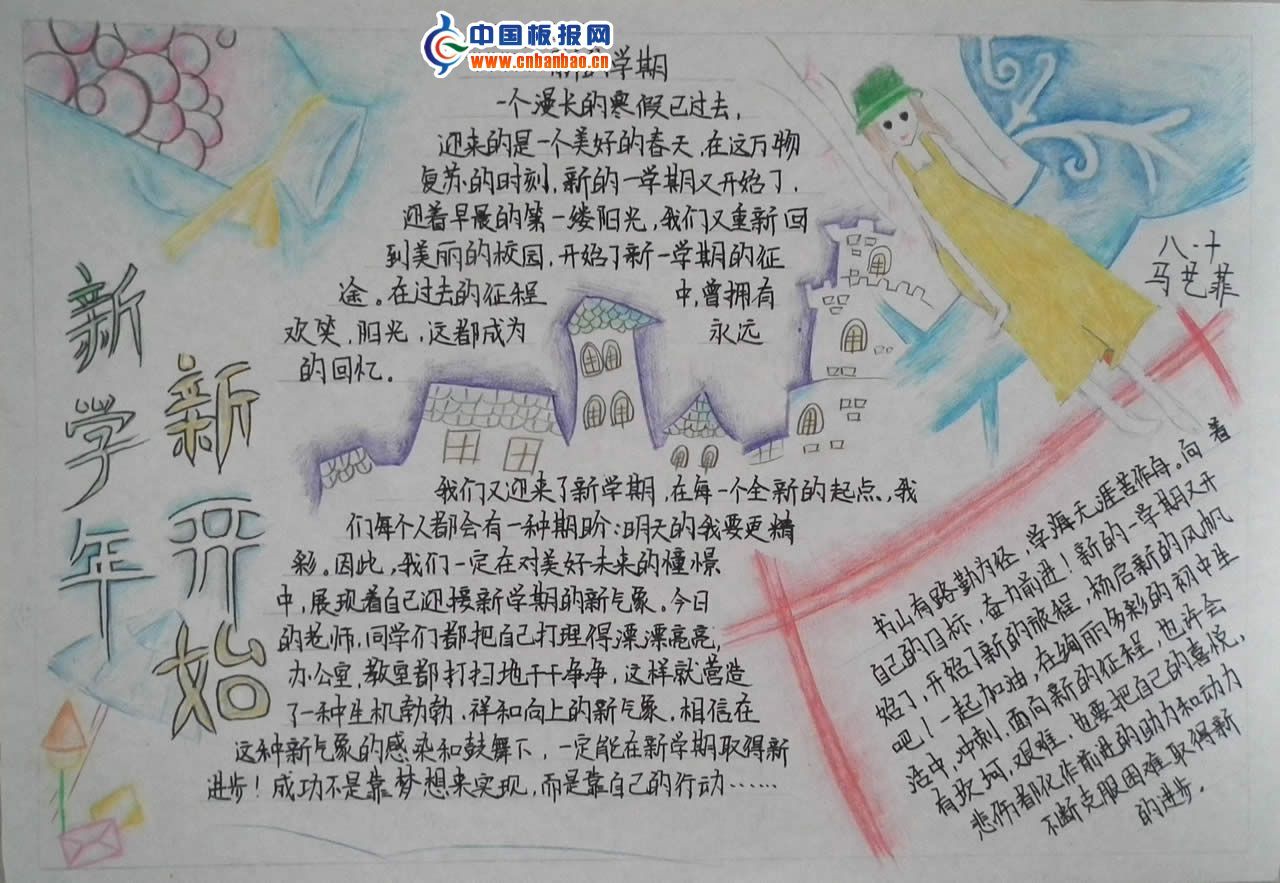 中国板报网
www.cnbanbao.cn
学期
一个漫长的寒假已过去,
迎来的是一个美好的春天,在这万物
复苏的时刻,新的一学期又开始了.
迎着早晨的第一缕阳光,我们又重新回
到美丽的校园,开始了新一学期的征
途。在过去的征程中,曾拥有
欢笑,阳光,这都成为永远
的回忆。
我们又迎来了新学期,在每一个全新的起点,我
们每个人都会有一种期盼:明天的我要更精
彩。因此,我们一定在对美好未来的憧憬
中,展现着自己迎接新学期的新气象。今日
的老师,同学们都把自己打理得漂漂亮亮,
办公室,教室都打扫地干干净净,这样就营造
了一种生机勃勃、祥和向上的新气象.相信在
这种新气象的感染和鼓舞下,一定能在新学期取得新
进步!成功不是靠梦想来实现,而是靠自己的行动……
新学年
新开始
八.十
马艺菲
书山有路勤为径,学海无涯苦作舟。向着
自己的目标,奋力前进!新的一学期又开
始了,开始了新的旅程,杨启新的风帆
吧!一起加油,在绚丽多彩的初中生
活中,冲刺.面向新的征程,也许会
有坎坷,艰难.也要把自己的喜悦,
悲伤都化作前进的助力和动力
不断克服困难取得新
的进步。